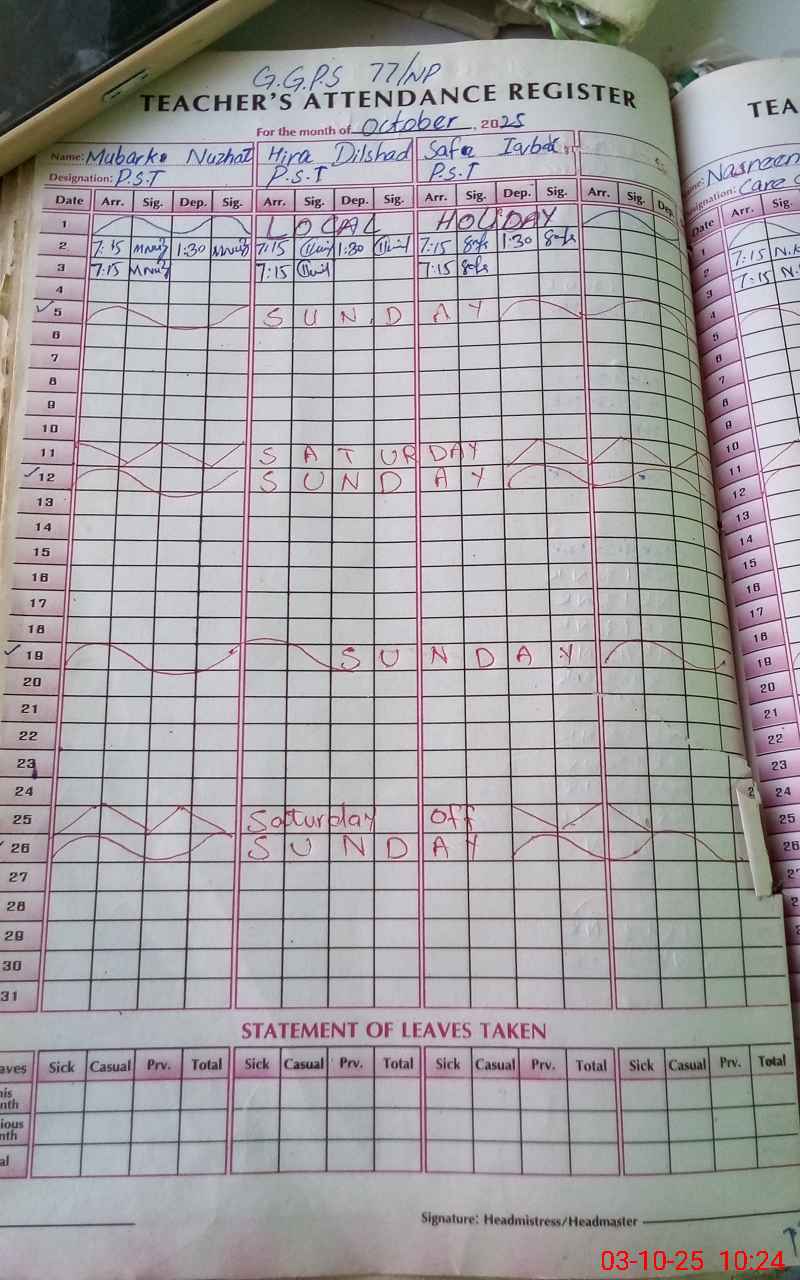 G.G.P.S 77/NP
TEACHER'S ATTENDANCE REGISTER
For the month of October, 2025
Name: Mubarka Nuzhat Hira Dilshad Safa Iqbal
Designation: P.S.T P.S.T P.S.T
Date Arr. Sig. Dep. Sig. Arr. Sig. Dep. Sig. Arr. Sig. Dep. Sig. Arr. Sig. Dep.
1 LOCAL HOLIDAY
2 7:15 1:30 7:15 1:30 7:15 Safa 1:30 Safa
3 7:15 7:15 7:15 Safa
4
5 SUNDAY
6
7
8
9
10
11 SATURDAY
12 SUNDAY
13
14
15
16
17
18
19 SUNDAY
20
21
22
23
24
25 Saturday off
26 SUNDAY
27
28
29
30
31
STATEMENT OF LEAVES TAKEN
aves Sick Casual Prv. Total Sick Casual Prv. Total Sick Casual Prv. Total Sick Casual Prv. Total
his
nth
ious
nth
al
Signature: Headmistress/Headmaster
TEA
Nasreen
signation: Care
Date Arr. Sig.
1 7:15 N.
2 7:15 N.
3
4
5
6
7
8
9
10
11
12
13
14
15
16
17
18
19
20
21
22
23
24
25
26
03-10-25 10:24